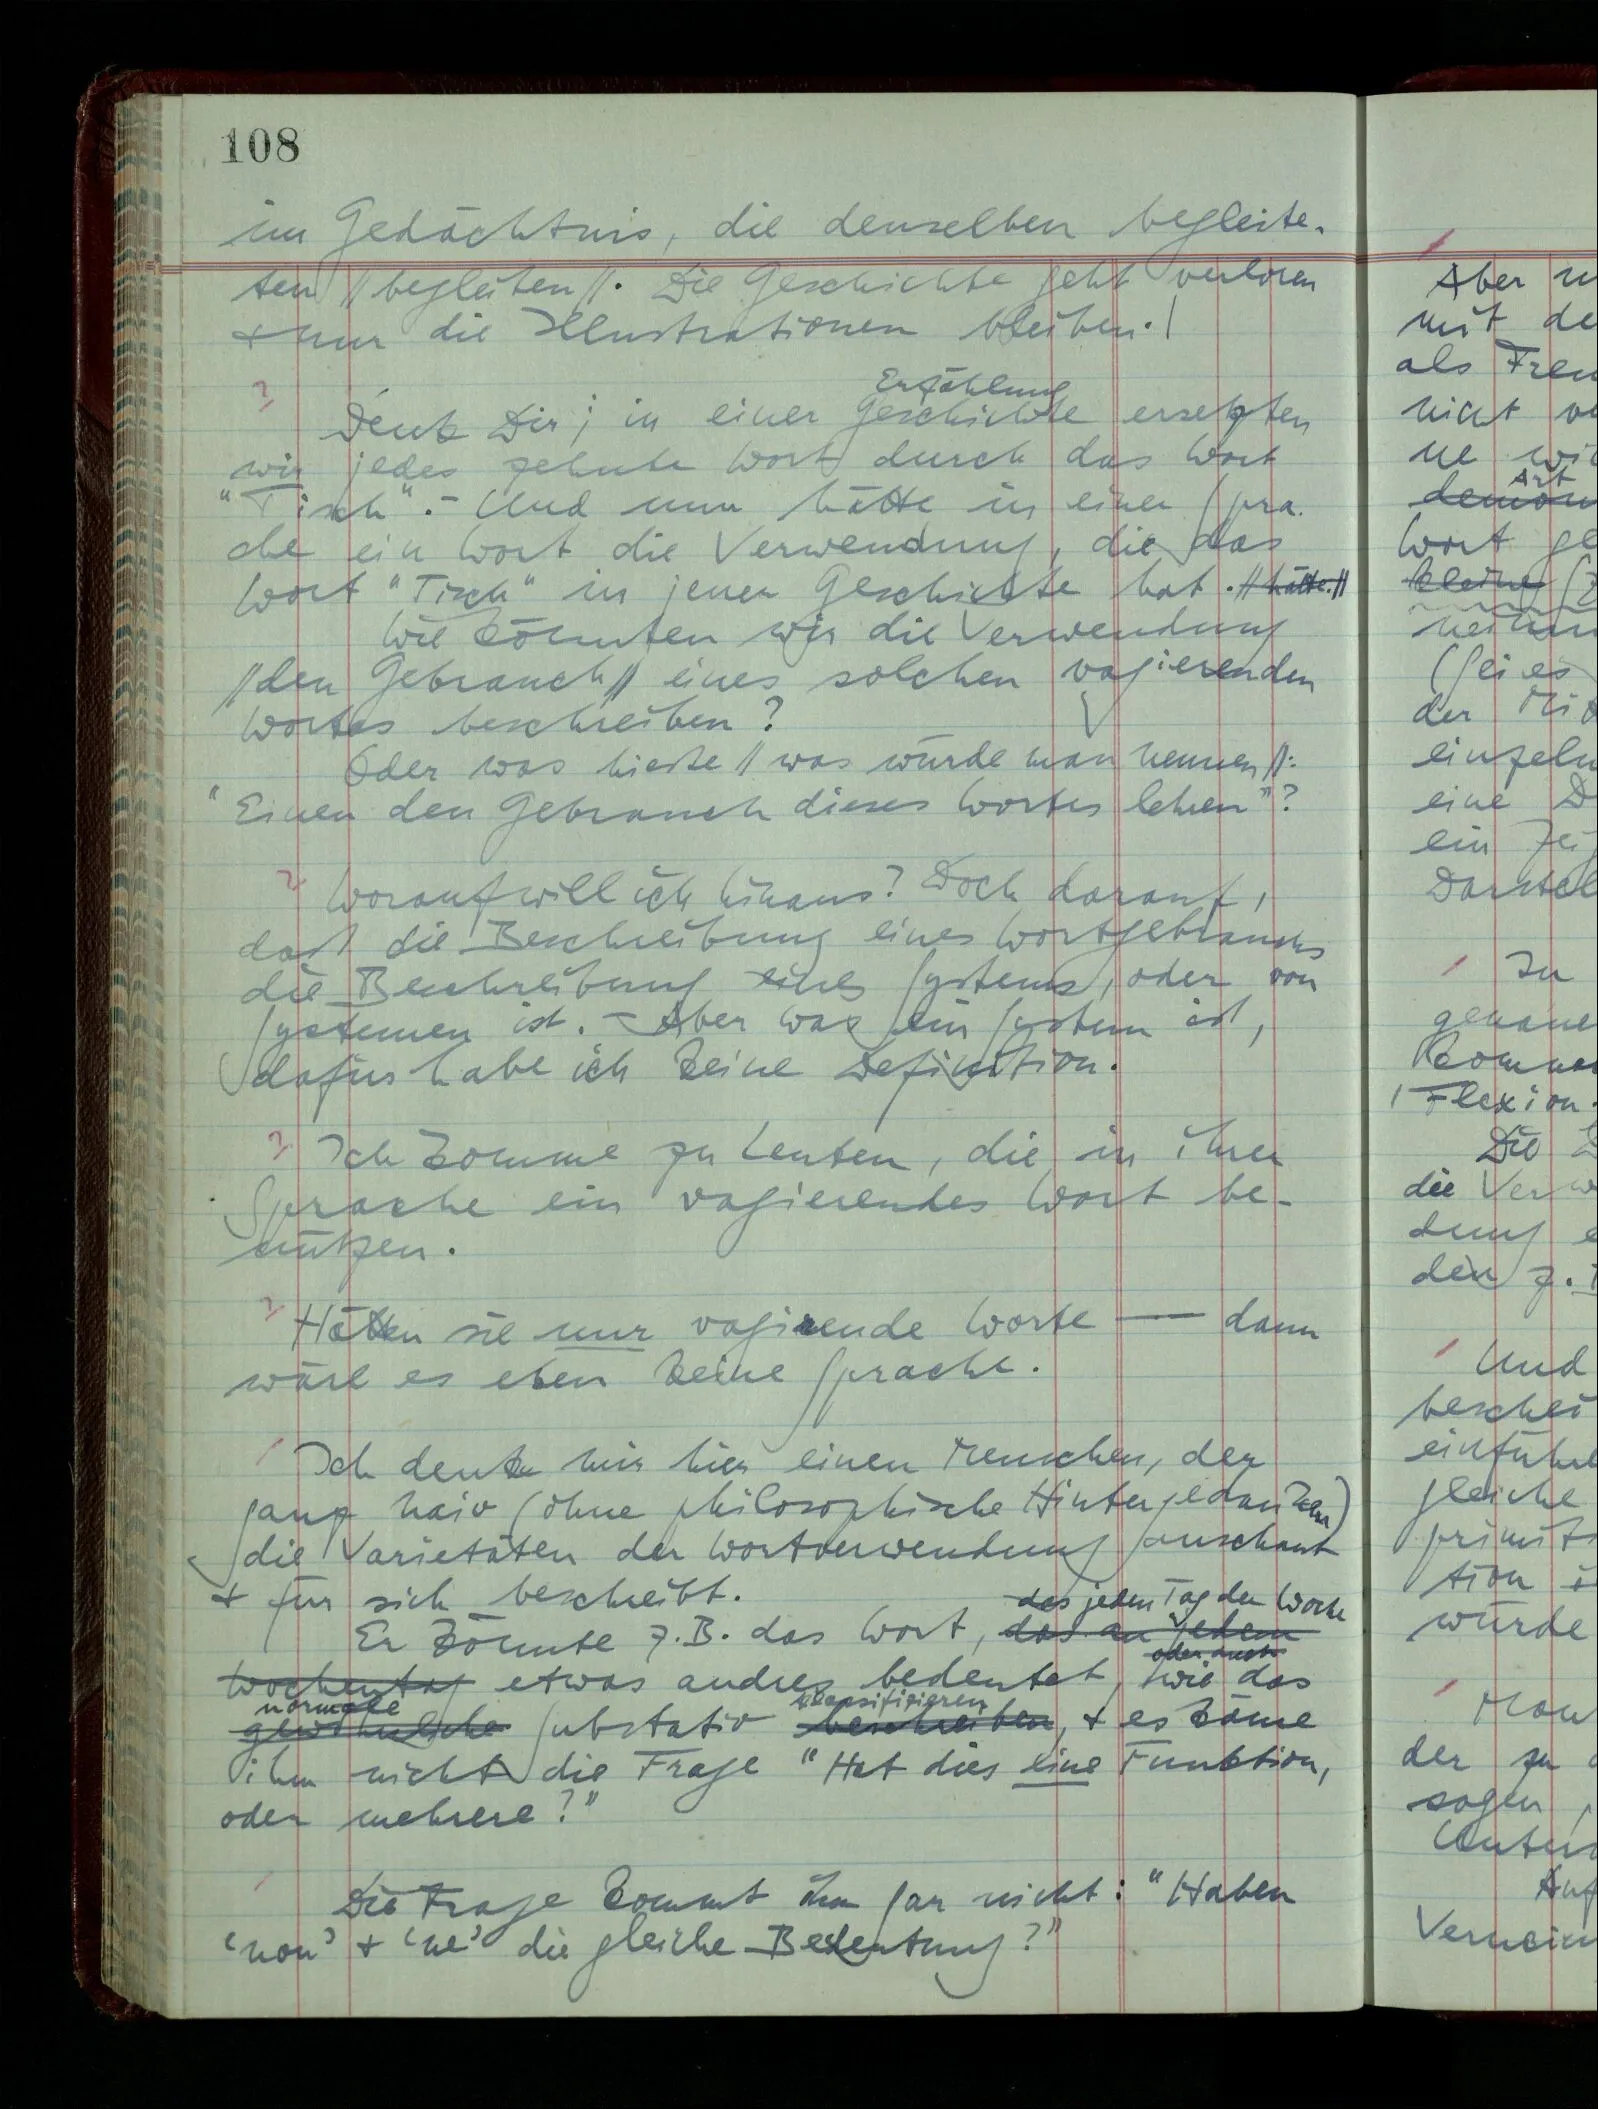 108
im Gedächtnis, die denselben begleite-
ten // begleiten //. Die Geschichte geht verloren
& nur die Illustrationen bleiben.
?
Erzählung
Denk Dir; in einer Geschichte ersetzten
wir jedes zehnte Wort durch das Wort
"Tisch". – Und nun hätte in einer Spra-
che ein Wort die Verwendung, die das
Wort "Tisch" in jener Geschichte hat. // hätte. //
Wie könnten wir die Verwendung
// den Gebrauch // eines solchen vagierenden
Wortes beschreiben?
Oder was hieße // was würde man nennen //:
"Einen den Gebrauch dieses Wortes lehren"?
? Worauf will ich hinaus? Doch darauf,
daß die Beschreibung eines Wortgebrauchs
die Beschreibung eines Systems, oder von
Systemen ist. – Aber was ein System ist,
dafür habe ich keine Definition.
? Ich komme zu Leuten, die in ihrer
Sprache ein vagierendes Wort be-
nützen.
? Hätten sie nur vagierende Worte — dann
wäre es eben keine Sprache.
/ Ich denke mir hier einen Menschen, der
ganz naiv (ohne philosophische Hintergedanken)
die Varietäten der Wortverwendung anschaut
& für sich beschreibt.
das jeden Tag der Woche
Er könnte z.B. das Wort, das an jedem
oder auch
Wochentag etwas andres bedeutet, wie das
normale klassifizieren
gewöhnliche Substativ beschreiben, & es käme
ihm nicht die Frage "Hat dies eine Funktion,
oder mehrere?"
/
Die Frage kommt ihm gar nicht: "Haben
'non' & 'ne' die gleiche Bedeutung?"
/
Aber
mit de
als Fren
nicht
ne
Art
Wort ge
kleine
(sei es
der
einzeln
eine D
ein Zei
Darstel
/ In
genaue
komme
Flexion
Die
die Verw
dung e
den z.
/ Und
beschei
einführe
gleiche
primiti
tion
würde
/
der zu
sagen
Unter
Auf
Vernein